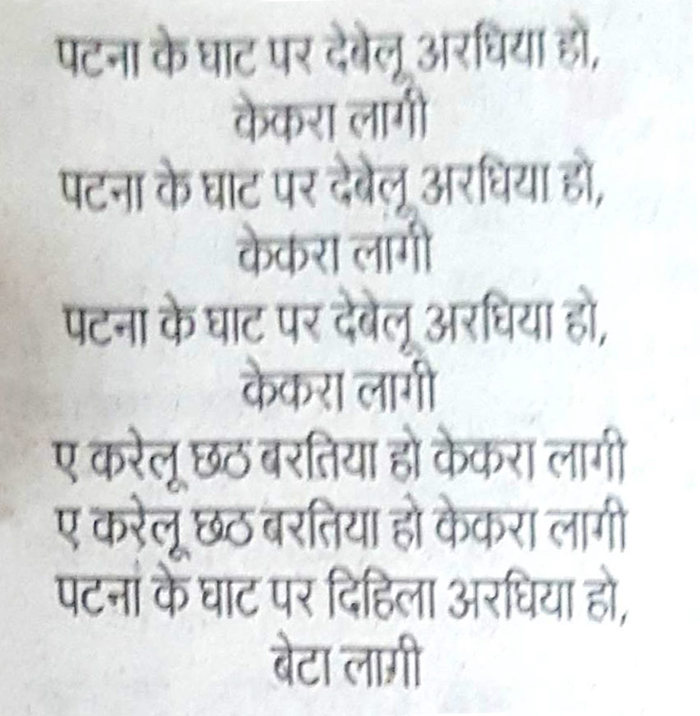 पटना के घाट पर देबेलू अरघिया हो,
केकरा लागी
पटना के घाट पर देबेलू अरघिया हो,
केकरा लागी
पटना के घाट पर देबेलू अरघिया हो,
केकरा लागी
ए करेलू छठ बरतिया हो केकरा लागी
ए करेलू छठ बरतिया हो केकरा लागी
पटना के घाट पर दिहिला अरघिया हो,
बेटा लागी